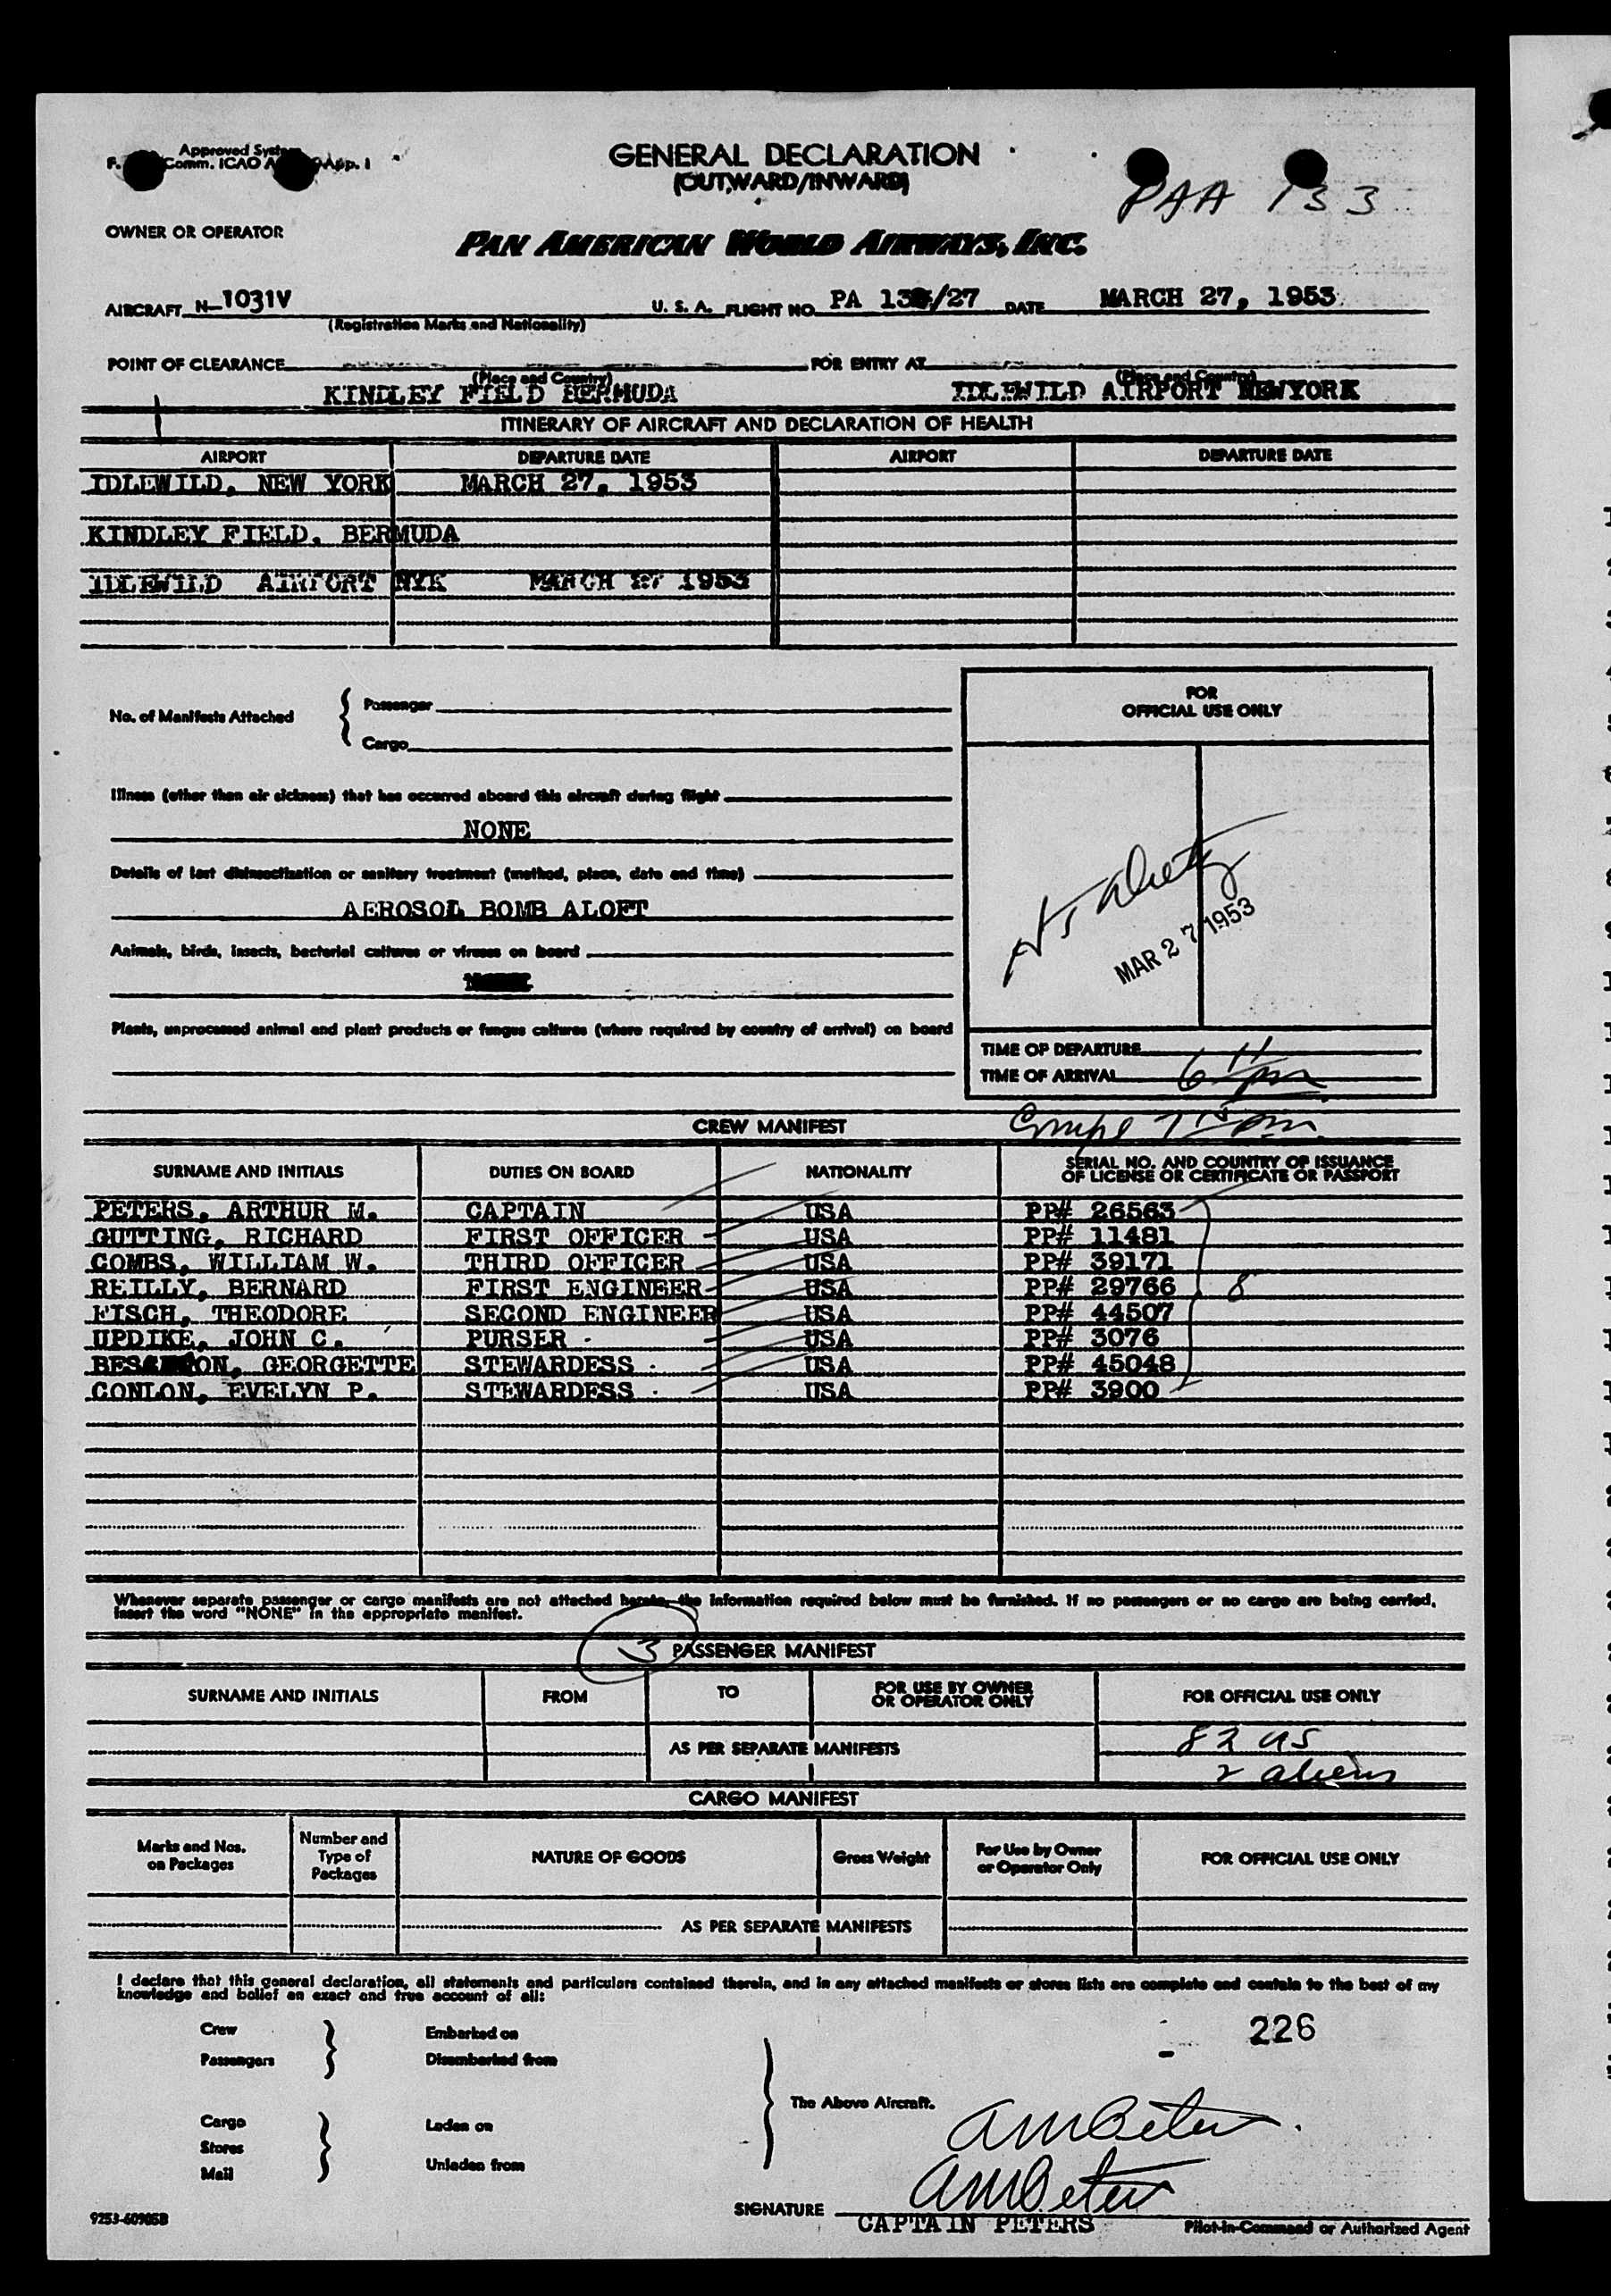 Approved System
Comm. ICAO App. I
GENERAL DECLARATION
(OUTWARD/INWARD)
PAA 133
OWNER OR OPERATOR
PAN AMERICAN WORLD AIRWAYS, INC.
AIRCRAFT N-1031V U. S. A. FLIGHT NO. PA /27 DATE MARCH 27, 1953
(Registration Marks and Nationality)
POINT OF CLEARANCE FOR ENTRY AT
(Place and Country) (Place and Country)
KINDLEY FIELD BERMUDA IDLEWILD AIRPORT NEWYORK
ITINERARY OF AIRCRAFT AND DECLARATION OF HEALTH
AIRPORT DEPARTURE DATE AIRPORT DEPARTURE DATE
IDLEWILD, NEW YORK MARCH 27, 1953
KINDLEY FIELD, BERMUDA
IDLEWILD AIRPORT NYK MARCH 27 1953
No. of Manifests Attached { Passenger
Cargo
FOR
OFFICIAL USE ONLY
Illness (other than air sickness) that has occurred aboard this aircraft during flight
NONE
Details of last disinsectization or sanitary treatment (method, place, date and time)
AEROSOL BOMB ALOFT
Animals, birds, insects, bacterial cultures or viruses on board
MAR 27 1953
Plants, unprocessed animal and plant products or fungus cultures (where required by country of arrival) on board
TIME OF DEPARTURE
TIME OF ARRIVAL 6 11 pm
CREW MANIFEST 7 15 pm.
SURNAME AND INITIALS DUTIES ON BOARD NATIONALITY SERIAL NO. AND COUNTRY OF ISSUANCE
OF LICENSE OR CERTIFICATE OR PASSPORT
PETERS, ARTHUR M. CAPTAIN USA PP# 26563
GUTTING, RICHARD FIRST OFFICER USA PP# 11481
COMBS, WILLIAM W. THIRD OFFICER USA PP# 39171
REILLY, BERNARD FIRST ENGINEER USA PP# 29766 8
FISCH, THEODORE SECOND ENGINEER USA PP# 44507
UPDIKE, JOHN C. PURSER USA PP# 3076
GEORGETTE STEWARDESS USA PP# 45048
CONLON, EVELYN P. STEWARDESS USA PP# 3900
Whenever separate passenger or cargo manifests are not attached hereto, the information required below must be furnished. If no passengers or no cargo are being carried,
insert the word "NONE" in the appropriate manifest.
3 PASSENGER MANIFEST
SURNAME AND INITIALS FROM TO FOR USE BY OWNER
OR OPERATOR ONLY FOR OFFICIAL USE ONLY
82 US
AS PER SEPARATE MANIFESTS
2 aliens
CARGO MANIFEST
Marks and Nos.
on Packages Number and
Type of
Packages NATURE OF GOODS Gross Weight For Use by Owner
or Operator Only FOR OFFICIAL USE ONLY
AS PER SEPARATE MANIFESTS
I declare that this general declaration, all statements and particulars contained therein, and in any attached manifests or stores lists are complete and contain to the best of my
knowledge and belief an exact and true account of all:
226
Crew Embarked on
Passengers Disembarked from
The Above Aircraft.
Cargo Laden on
Stores
Mail Unladen from
AMPeters
AMPeters
SIGNATURE
CAPTAIN PETERS Pilot-in-Command or Authorized Agent
9253-60905B